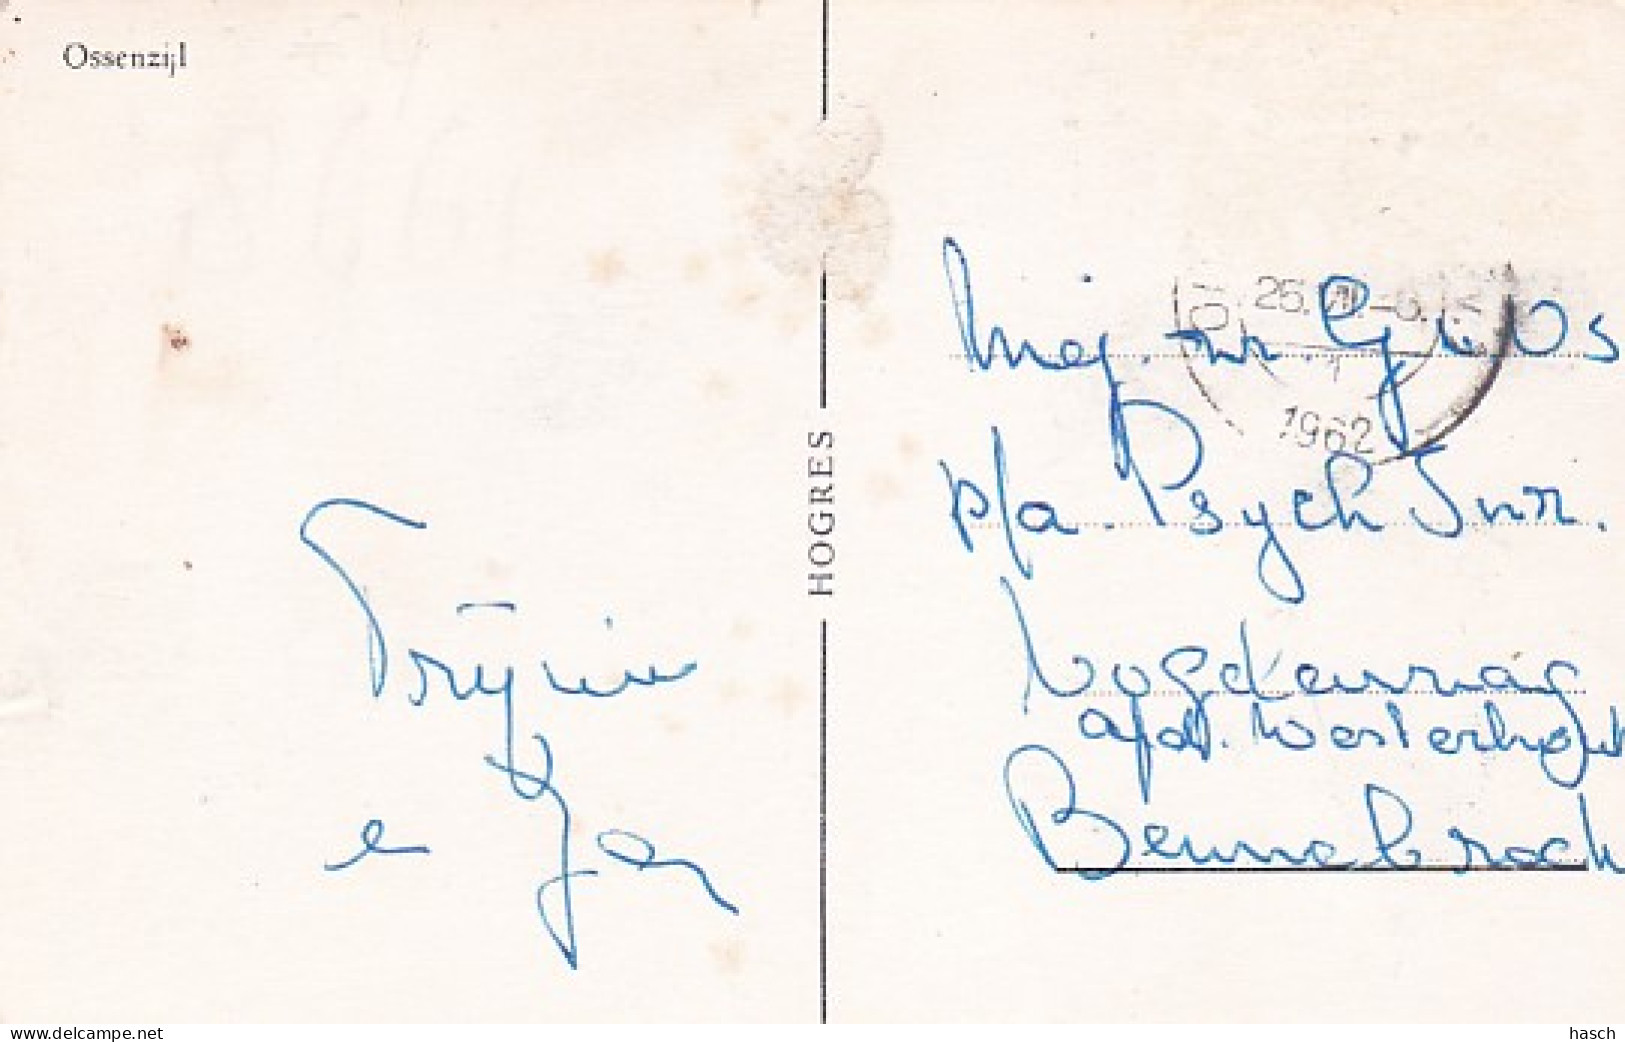 Ossenzijl
HOGRES
25. VII.
1962
Mej. G. Vos
p/a. Psych Inr.
Vogelenzang
afd. Westerhout
Bennebroek
Trijnie
e Jan
www.delcampe.net
hasch